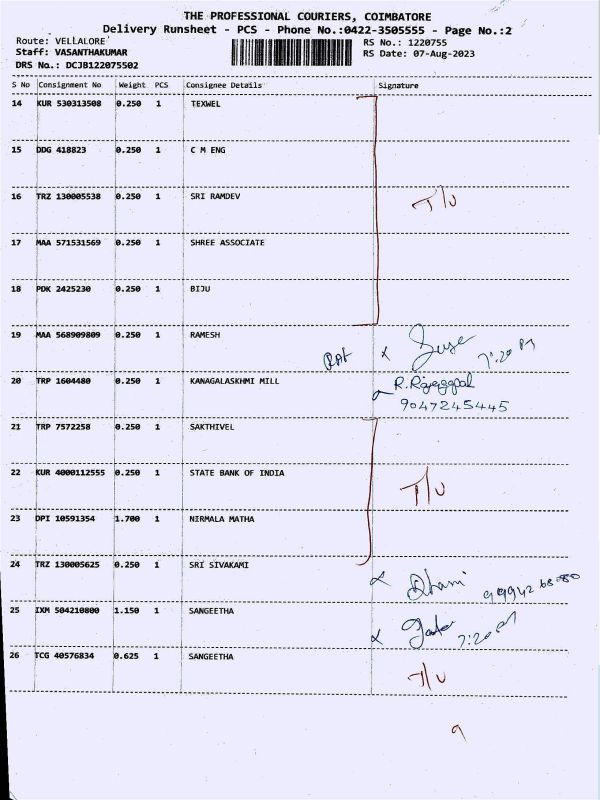 THE PROFESSIONAL COURIERS, COIMBATORE
Delivery Runsheet - PCS - Phone No.:0422-3505555 - Page No.:2
Route: VELLALORE
RS No.: 1220755
Staff: VASANTHAKUMAR
RS Date: 07-Aug-2023
DRS No.: DCJB122075502
S No Consignment No Weight PCS Consignee Details Signature
14 KUR 530313508 0.250 1 TEXWEL
15 DDG 418823 0.250 1 C M ENG
16 TRZ 130005538 0.250 1 SRI RAMDEV
T/U
17 MAA 571531569 0.250 1 SHREE ASSOCIATE
18 PDK 2425230 0.250 1 BIJU
19 MAA 568909809 0.250 1 RAMESH
7:20 PM
20 TRP 1604480 0.250 1 KANAGALASKHMI MILL R.Rajagopal
9047245445
21 TRP 7572258 0.250 1 SAKTHIVEL
22 KUR 4000112555 0.250 1 STATE BANK OF INDIA
T/U
23 DPI 10591354 1.700 1 NIRMALA MATHA
24 TRZ 130005625 0.250 1 SRI SIVAKAMI
25 IXM 504210800 1.150 1 SANGEETHA
7:20 PM
26 TCG 40576834 0.625 1 SANGEETHA
T/U
9